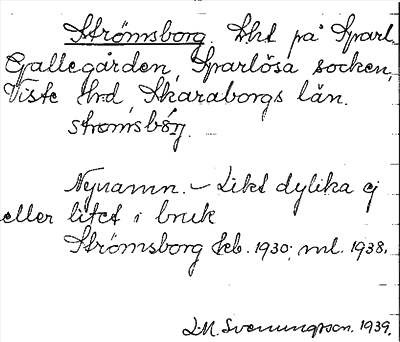 Strömsborg. Lht på Sparl.
Gallegården, Sparlösa socken,
Viste Hrd, Skaraborgs län.
strömsbörj.
Nynamn. – Likt dylika ej
eller litet i bruk
Strömsborg Jeb. 1930; ml. 1938.
J.M. Svenungsson. 1939.